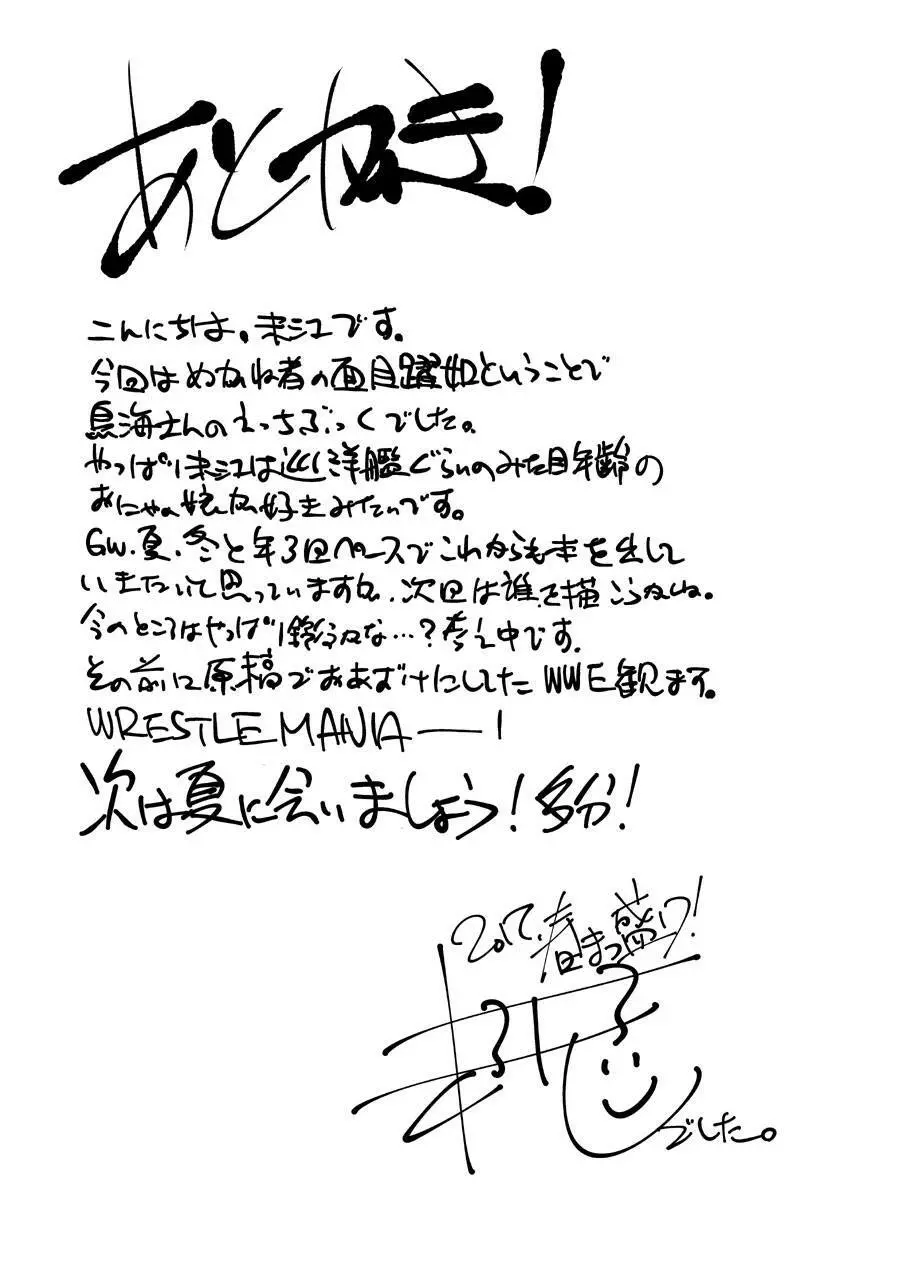 あとがき!
こんにちは。末江です。
今回はめがね者の面目躍如ということで
鳥海さんのえっちぶっくでした。
やっぱり末江は巡洋艦ぐらいのみた目年齢の
おにゃの娘が好きみたいです。
GW、夏、冬と年3回ペースでこれからも本を出して
いきたいって思っていますが、次回は誰を描こうかしら。
今のところはやっぱり鈴谷かな…?考え中です。
その前に原稿でおあずけにしてた WWE観ます。
WRESTLE MANIA――!
次は夏に会いましょう!多分!
2017.春まっ盛り!
でした。